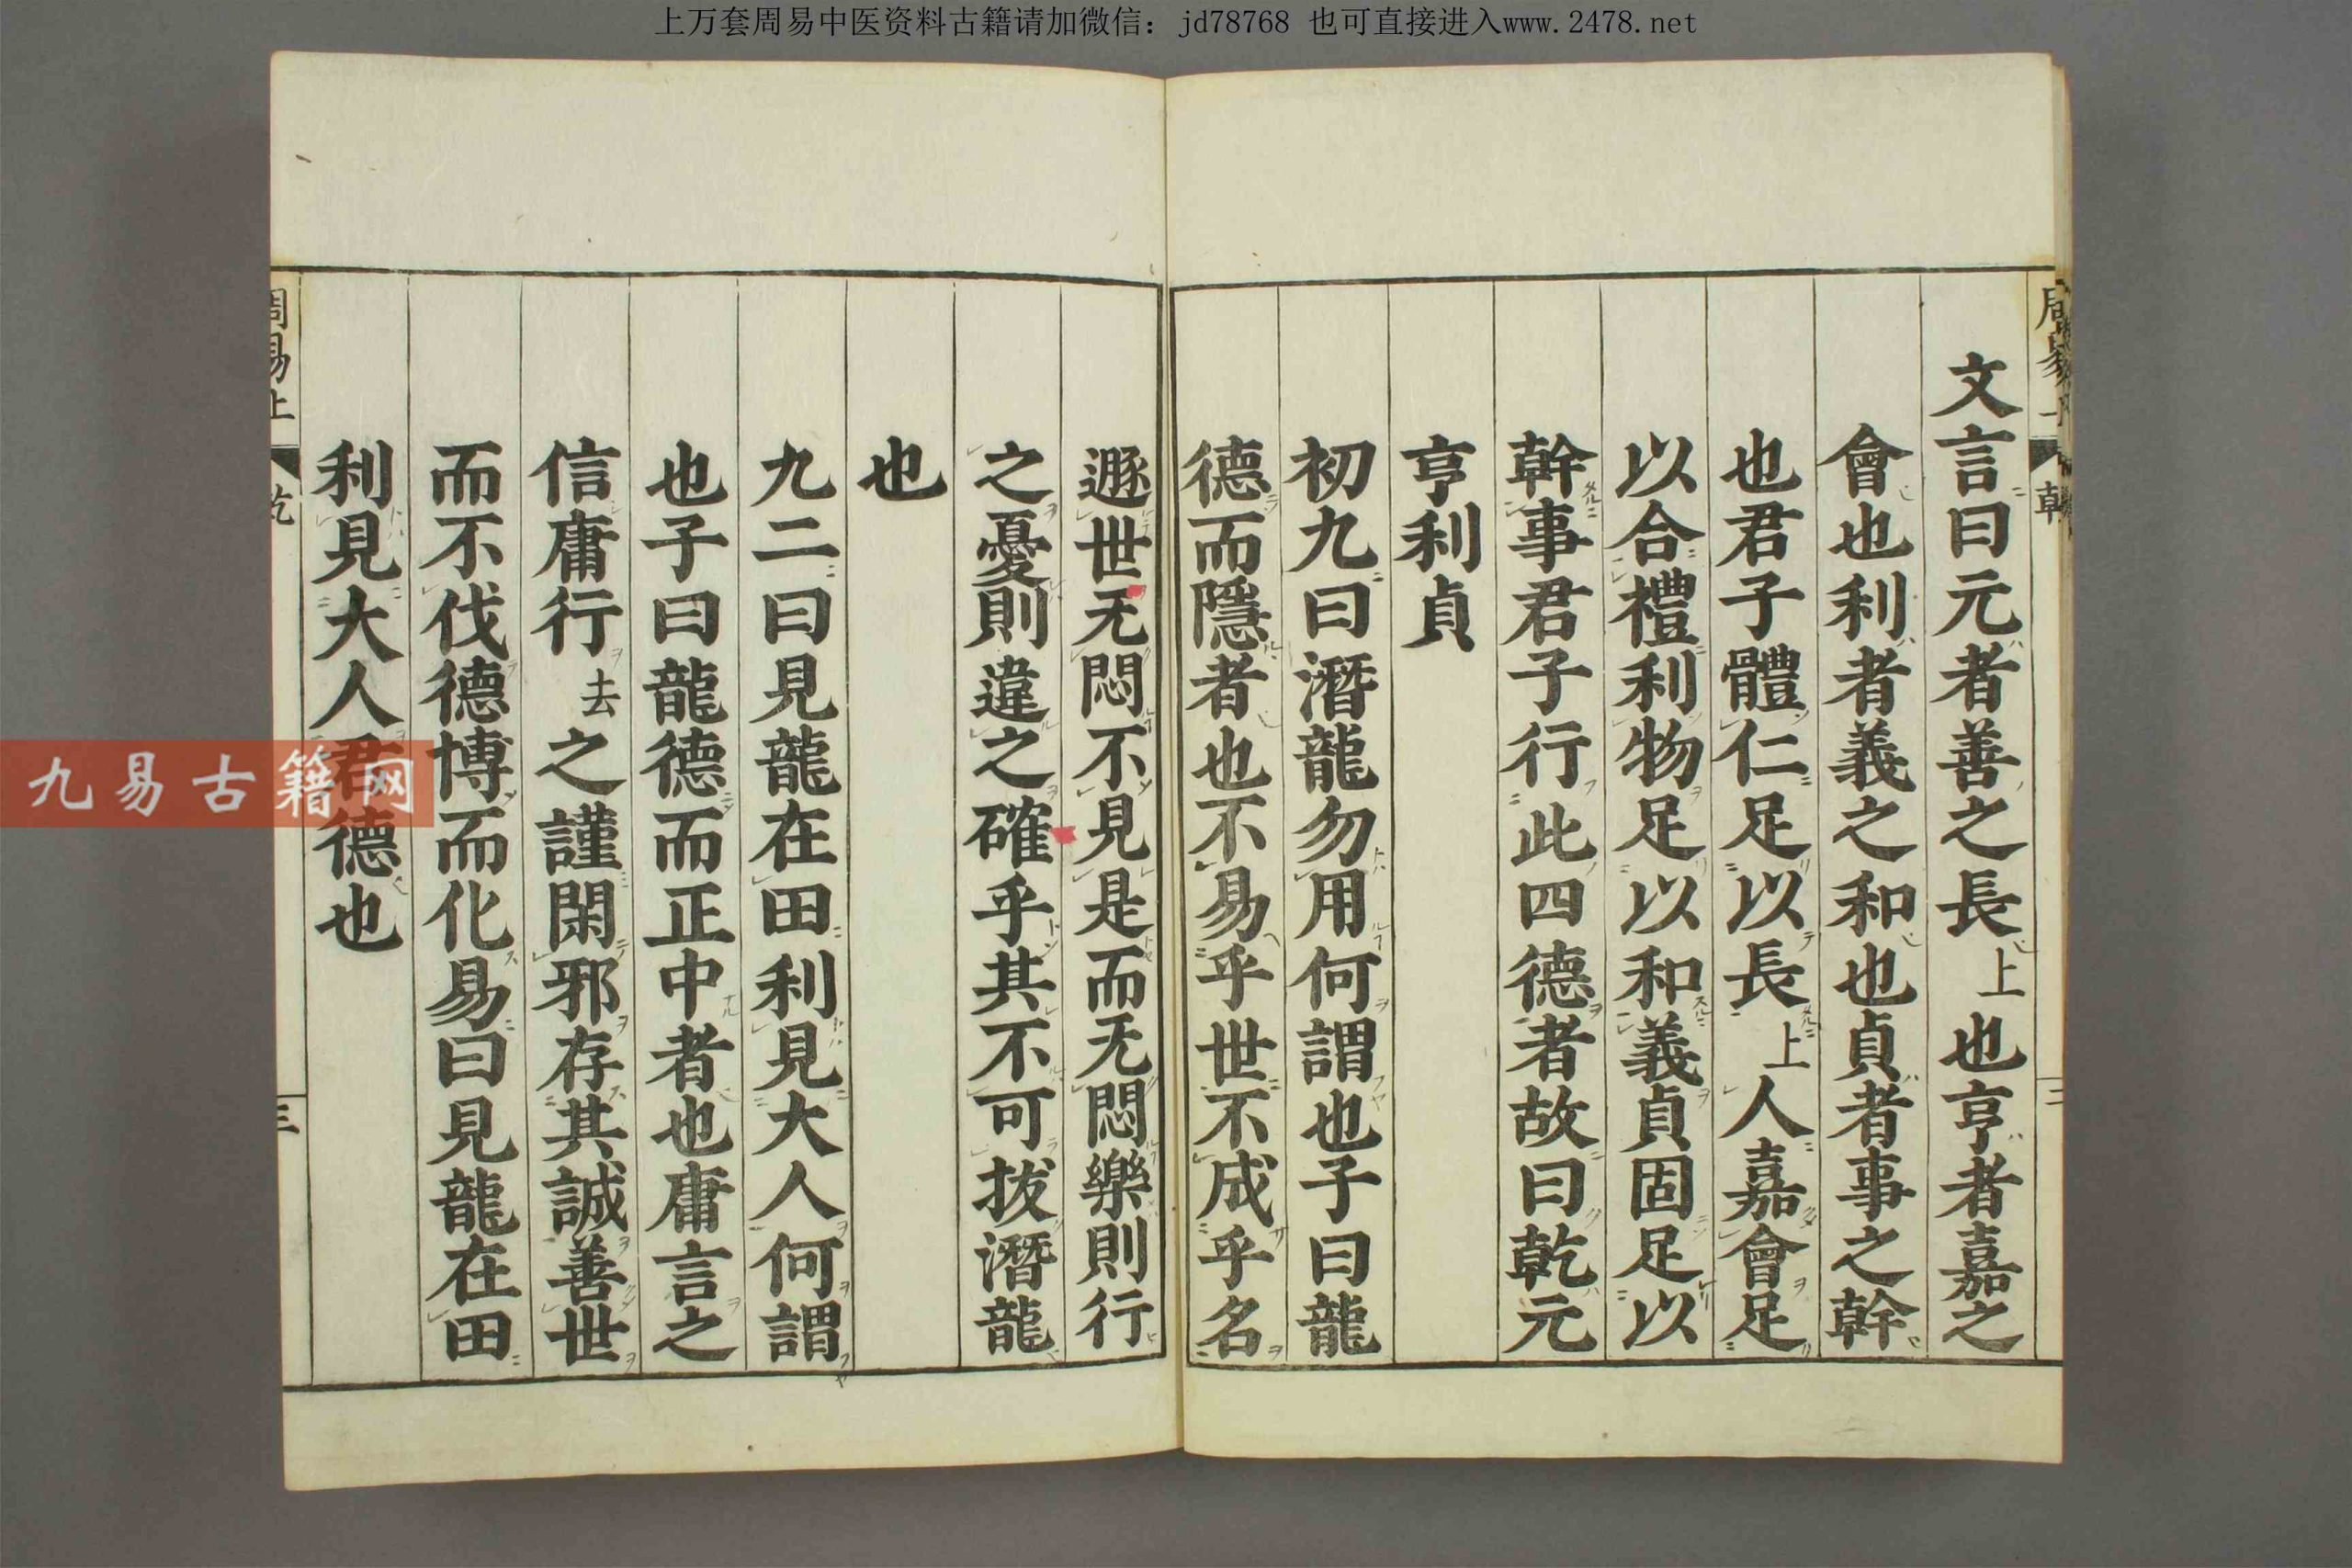 上万套周易中医资料古籍请加微信：jd78768 也可直接进入www.2478.net
文言曰元者善之長上也亨者嘉之
會也利者義之和也貞者事之幹
也君子體仁足以長上人嘉會足
以合禮利物足以和義貞固足以
幹事君子行此四德者故曰乾元
亨利貞
初九曰潛龍勿用何謂也子曰龍
德而隱者也不易乎世不成乎名
遯世无悶不見是而无悶樂則行
之憂則違之確乎其不可拔潛龍
也
九二曰見龍在田利見大人何謂
也子曰龍德而正中者也庸言之
信庸行去之謹閑邪存其誠善世
而不伐德博而化易曰見龍在田
利見大人君德也
周易上 乾 三
九易古籍网